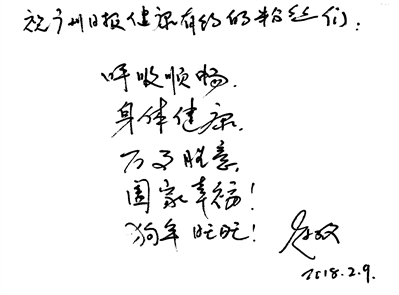 祝广州日报健康有约的粉丝们：
呼吸顺畅，
身体健康，
万事胜意，
阖家幸福！
狗年旺旺！
2018.2.9.